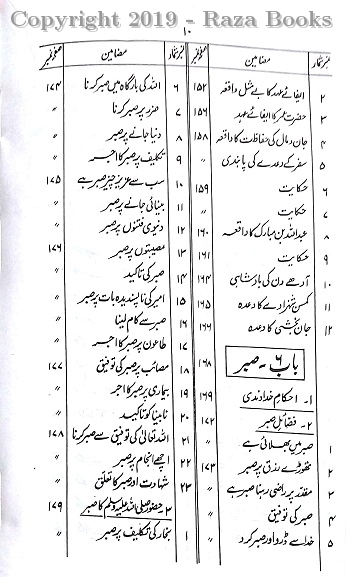 Copyright 2019 - Raza Books
۱۰
نمبر شمار مضامین صفحہ نمبر
۲ ایفائے عہد کا بے مثل واقعہ ۱۵۲
۳ حضرت عمر کا ایفائے عہد ۱۵۶
۴ جان و مال کی حفاظت کا واقعہ ۱۵۸
۵ سفر کے وعدے کی پابندی 〃
۶ حکایت ۱۵۹
۷ حکایت 〃
۸ عبداللہ بن مبارک کا واقعہ ۱۶۰
۹ حکایت ۱۶۱
۱۰ آدھے دن کی بادشاہی ۱۶۴
۱۱ کمسن شہزادے کا وعدہ ۱۶۵
۱۲ جان بخشی کا وعدہ ۱۶۶
باب ۶ - صبر ۱۶۸
۱- احکام خداوندی ۱۶۹
۲- فضائل صبر ۱۷۲
۱ صبر میں بھلائی ہے 〃
۲ تھوڑے رزق پر صبر ۱۷۳
۳ مقدر پر راضی رہنا صبر ہے 〃
۴ صبر کی توفیق 〃
۵ خدا سے ڈرو اور صبر کرو 〃
نمبر شمار مضامین صفحہ نمبر
۶ اللہ کی بارگاہ میں صبر کرنا ۱۷۴
۷ ضرر پر صبر کرنا 〃
۸ دنیا جانے پر صبر 〃
۹ تکلیف پر صبر کا اجر 〃
۱۰ سب سے عزیز چیز صبر ہے ۱۷۵
۱۱ بینائی جانے پر صبر 〃
۱۲ دنیوی فتنوں پر صبر 〃
۱۳ مصیبتوں پر صبر ۱۷۶
۱۴ صبر کی تاکید 〃
۱۵ امیر کی ناپسندیدہ بات پر صبر 〃
۱۶ صبر سے کام لینا 〃
۱۷ طاعون پر صبر کا اجر 〃
۱۸ مصائب پر صبر کی توفیق ۱۷۷
۱۹ بیماری پر صبر کا اجر 〃
۲۰ نابینا کو تاکید 〃
۲۱ اللہ تعالیٰ کی توفیق سے صبر کرنا ۱۷۸
۲۲ اچھے انجام پر صبر 〃
۲۳ شہادت اور صبر کا تعلق 〃
۳- حضور صلی اللہ علیہ وسلم کا صبر ۱۷۹
۱ بخار کی تکلیف پر صبر 〃